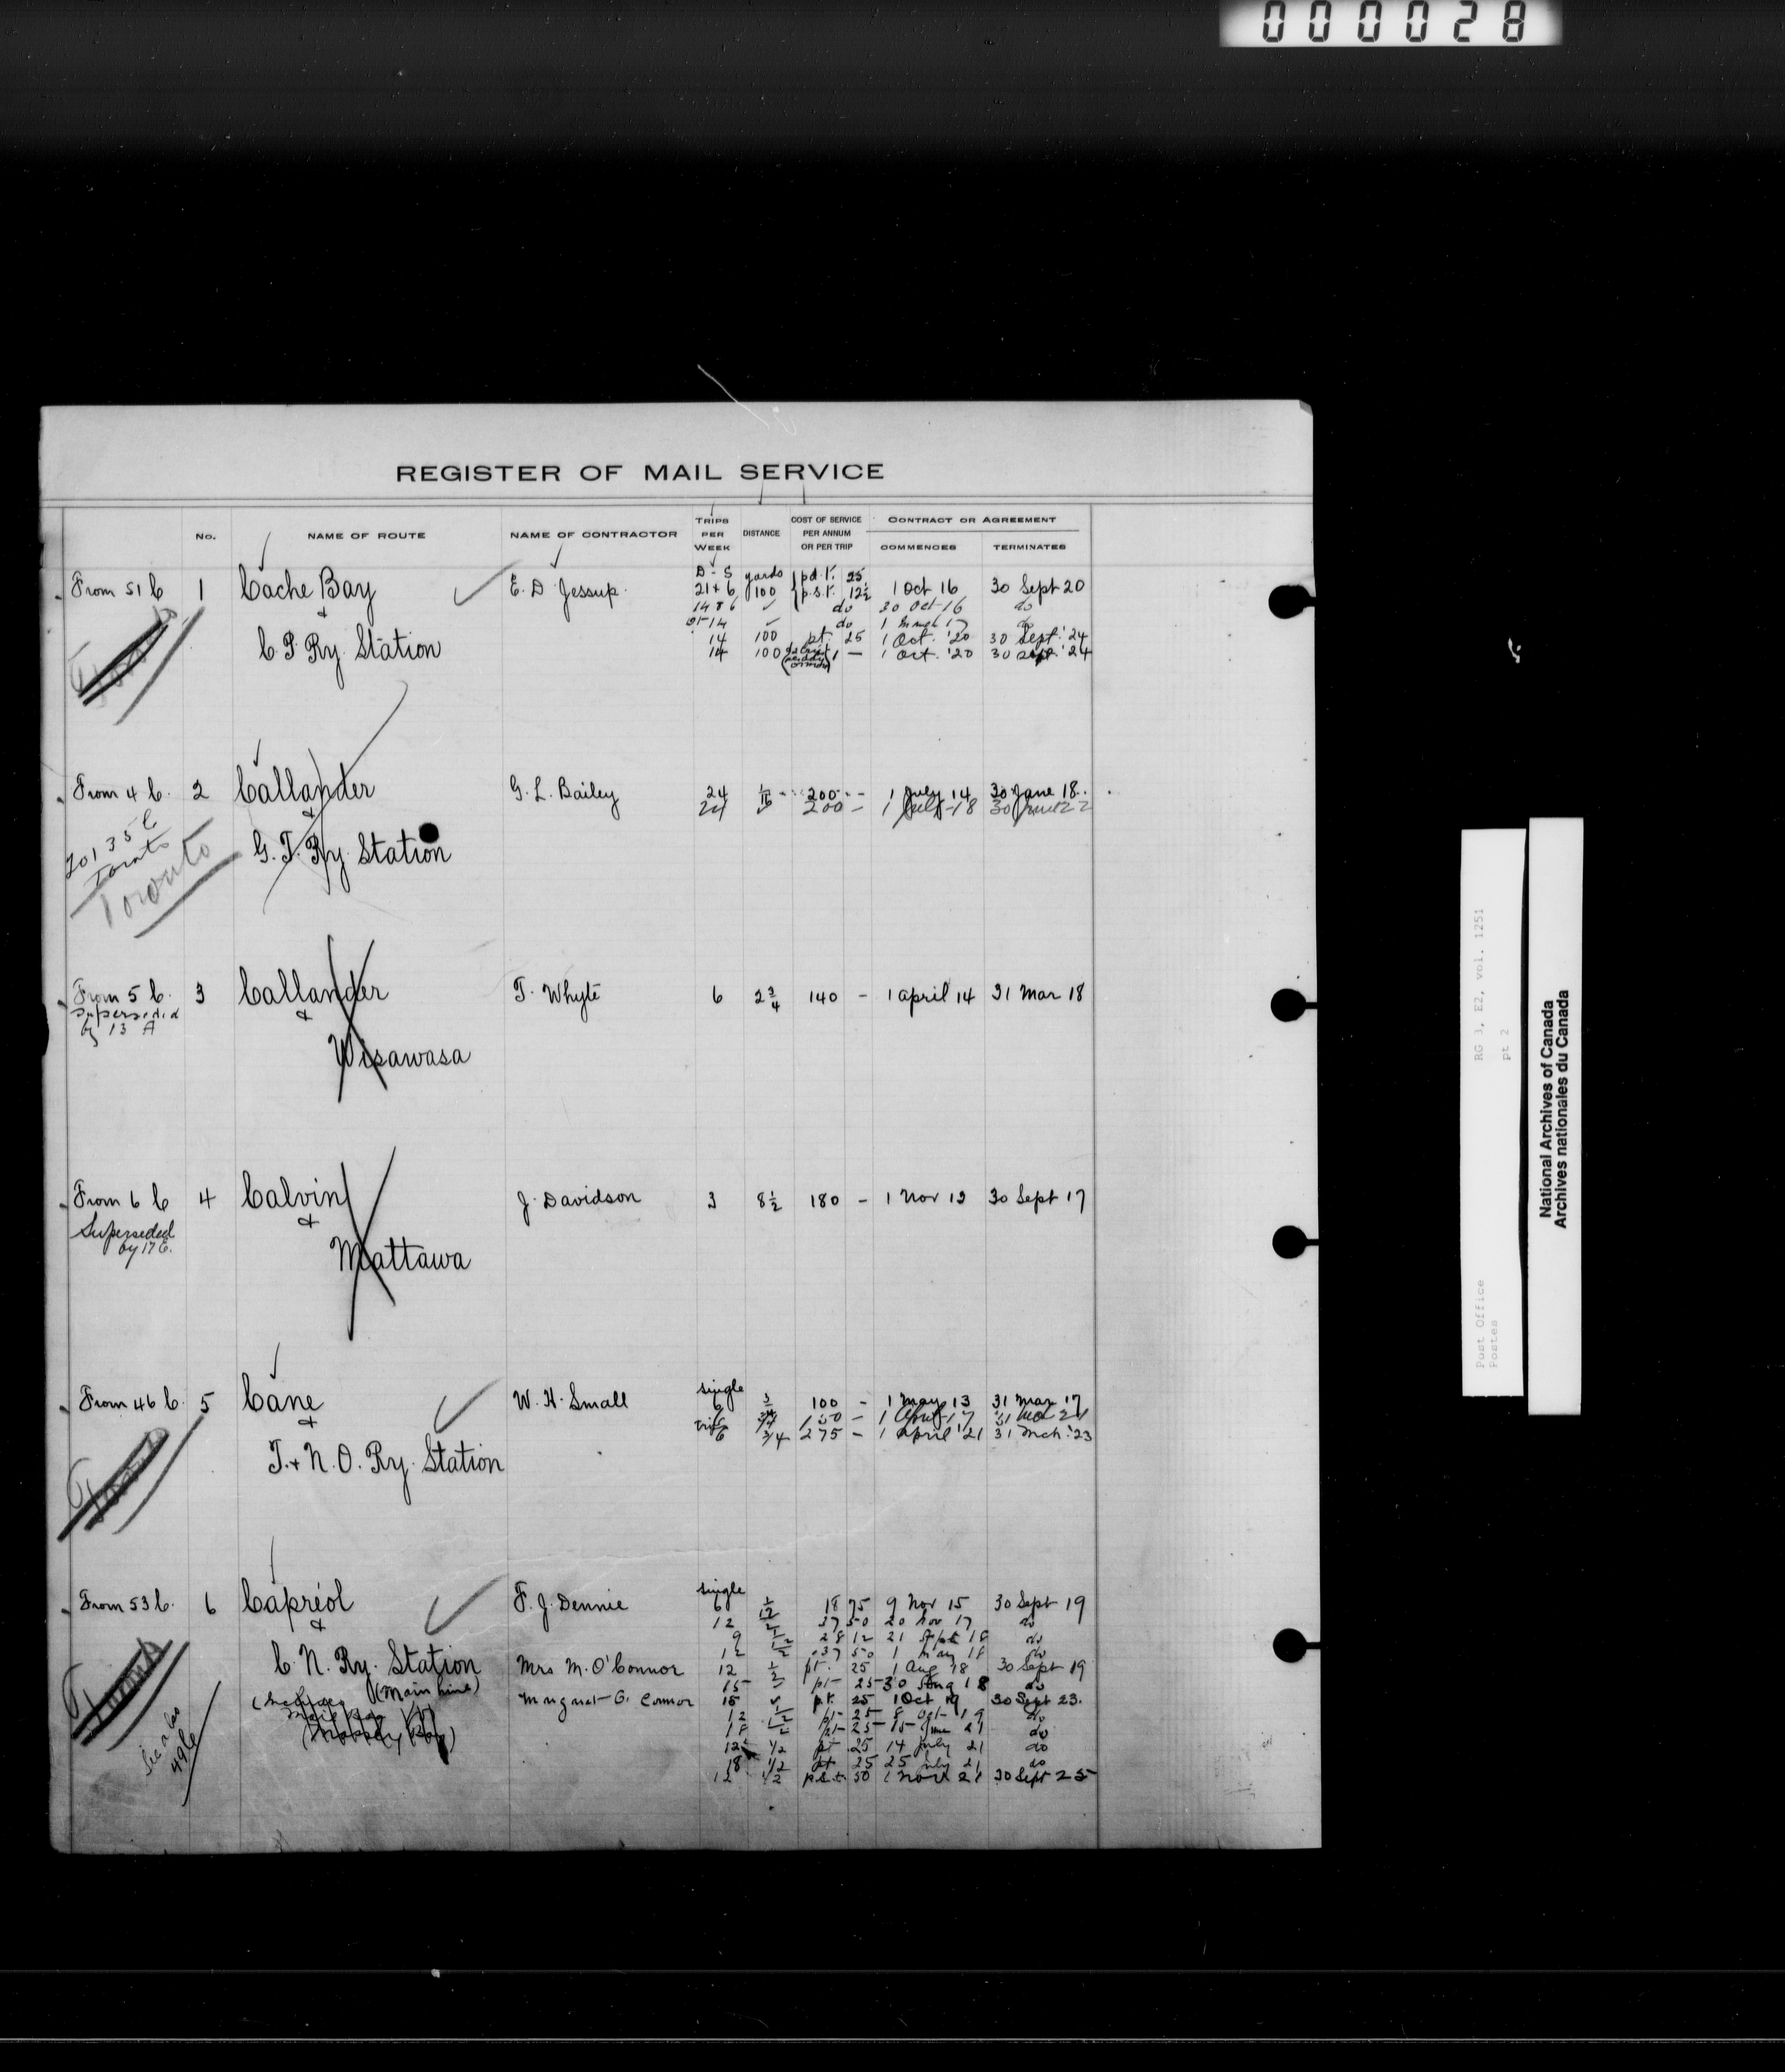 000028
REGISTER OF MAIL SERVICE
No. NAME OF ROUTE NAME OF CONTRACTOR TRIPS PER WEEK DISTANCE COST OF SERVICE PER ANNUM OR PER TRIP CONTRACT OR AGREEMENT COMMENCES TERMINATES
D-S yards pd.t. 25
From 51 C 1 Cache Bay E. D. Jessup. 21+6 100 p.s.t. 12½ 1 Oct 16 30 Sept 20
14 & 6 do 30 Oct 16 do
14 do 1 17 do
&
14 100 pt. 25 1 Oct. '20 30 Sept. '24
C. P. Ry. Station 14 100 1 — 1 Oct. '20 30 Sept. '24
From 4 C. 2 Callander G. L. Bailey 24 1/16 200 - 1 July 14 30 June 18
24 200 - 1 July 18 30 June 22
&
20135 C
Toronto
G. T. Ry. Station
Toronto
From 5 C. 3 Callander T. Whyte 6 2¾ 140 - 1 April 14 31 Mar 18
Superseded
by 13 A
&
Wisawasa
From 6 C 4 Calvin J. Davidson 3 8½ 180 - 1 Nov 13 30 Sept 17
&
Superseded
by 17 E.
Mattawa
single
From 46 C. 5 Cane W. H. Small 6 ¾ 100 - 1 May 13 31 Mar 17
3/4 150 - 1 April 17 31 Mar 21
& 6 3/4 275 - 1 April '21 31 Mch. '23
T. & N. O. Ry. Station
single
From 53 C. 6 Capreol F. J. Dennie 6 1/2 18 75 9 Nov 15 30 Sept 19
& 12 1/2 37 50 20 Nov 17 do
9 1/2 28 12 21 Sept 18 do
12 1/2 37 50 1 May 18 do
C. N. Ry. Station Mrs M. O'Connor 12 1/2 pt. 25 1 Aug 18 30 Sept 19
(Main Line) 15 pt 25 30 Aug 18 do
Margaret G. Connor 15 pt. 25 1 Oct 19 30 Sept 23.
12 1/2 pt 25 8 Oct 19 do
18 1/2 pt 25 15 June 21 do
See also
49 C
12 1/2 pt 25 14 July 21 do
18 1/2 pt 25 25 July 21 do
12 1/2 p.s.t. 50 1 Nov 21 30 Sept 25
RG 3, E2, vol. 1251
pt 2
Post Office
Postes
National Archives of Canada
Archives nationales du Canada